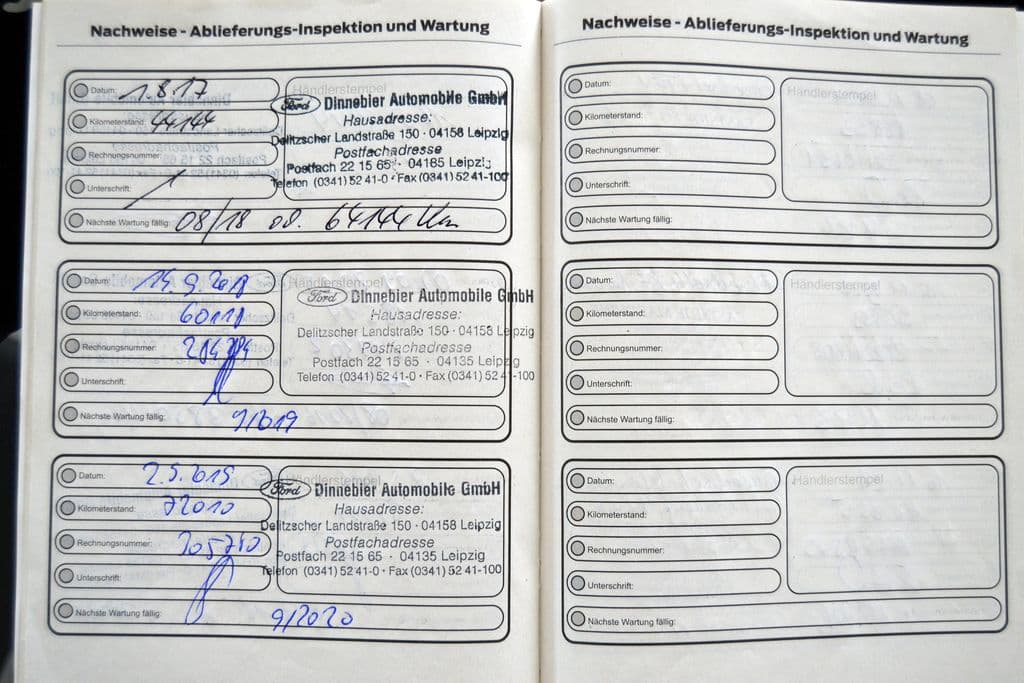 Nachweise - Ablieferungs-Inspektion und Wartung
Datum: 1.8.17
Kilometerstand: 44144
Rechnungsnummer:
Unterschrift:
Nächste Wartung fällig: 08/18 od. 64144 Km
Händlerstempel
Ford Dinnebier Automobile GmbH
Hausadresse:
Delitzscher Landstraße 150 · 04158 Leipzig
Postfachadresse
Postfach 22 15 65 · 04185 Leipzig
Telefon (0341) 52 41-0 · Fax (0341) 52 41-100
Datum: 14.9.2018
Kilometerstand: 60111
Rechnungsnummer:
Unterschrift:
Nächste Wartung fällig: 9/2019
Händlerstempel
Ford Dinnebier Automobile GmbH
Hausadresse:
Delitzscher Landstraße 150 · 04158 Leipzig
Postfachadresse
Postfach 22 15 65 · 04135 Leipzig
Telefon (0341) 52 41-0 · Fax (0341) 52 41-100
Datum: 2.9.2019
Kilometerstand: 72010
Rechnungsnummer:
Unterschrift:
Nächste Wartung fällig: 9/2020
Händlerstempel
Ford Dinnebier Automobile GmbH
Hausadresse:
Delitzscher Landstraße 150 · 04158 Leipzig
Postfachadresse
Postfach 22 15 65 · 04135 Leipzig
Telefon (0341) 52 41-0 · Fax (0341) 52 41-100
Nachweise - Ablieferungs-Inspektion und Wartung
Datum:
Kilometerstand:
Rechnungsnummer:
Unterschrift:
Nächste Wartung fällig:
Händlerstempel
Datum:
Kilometerstand:
Rechnungsnummer:
Unterschrift:
Nächste Wartung fällig:
Händlerstempel
Datum:
Kilometerstand:
Rechnungsnummer:
Unterschrift:
Nächste Wartung fällig:
Händlerstempel